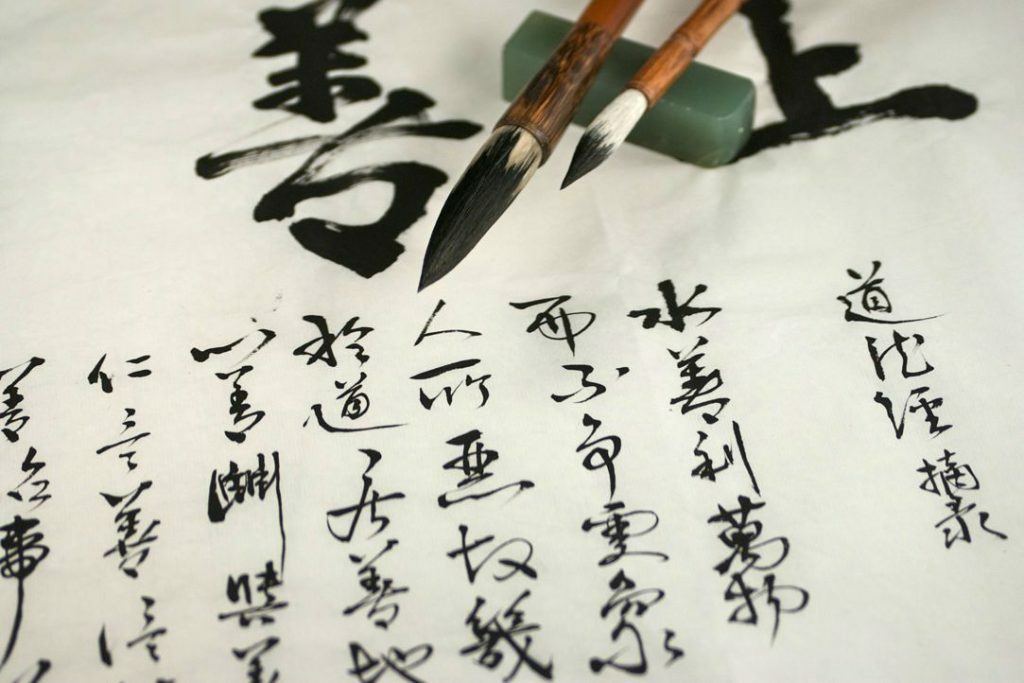 上善
道德經摘录
水善利萬物
而不争處衆
人所惡故幾
於道居善地
心善淵與善
仁言善信
善治事